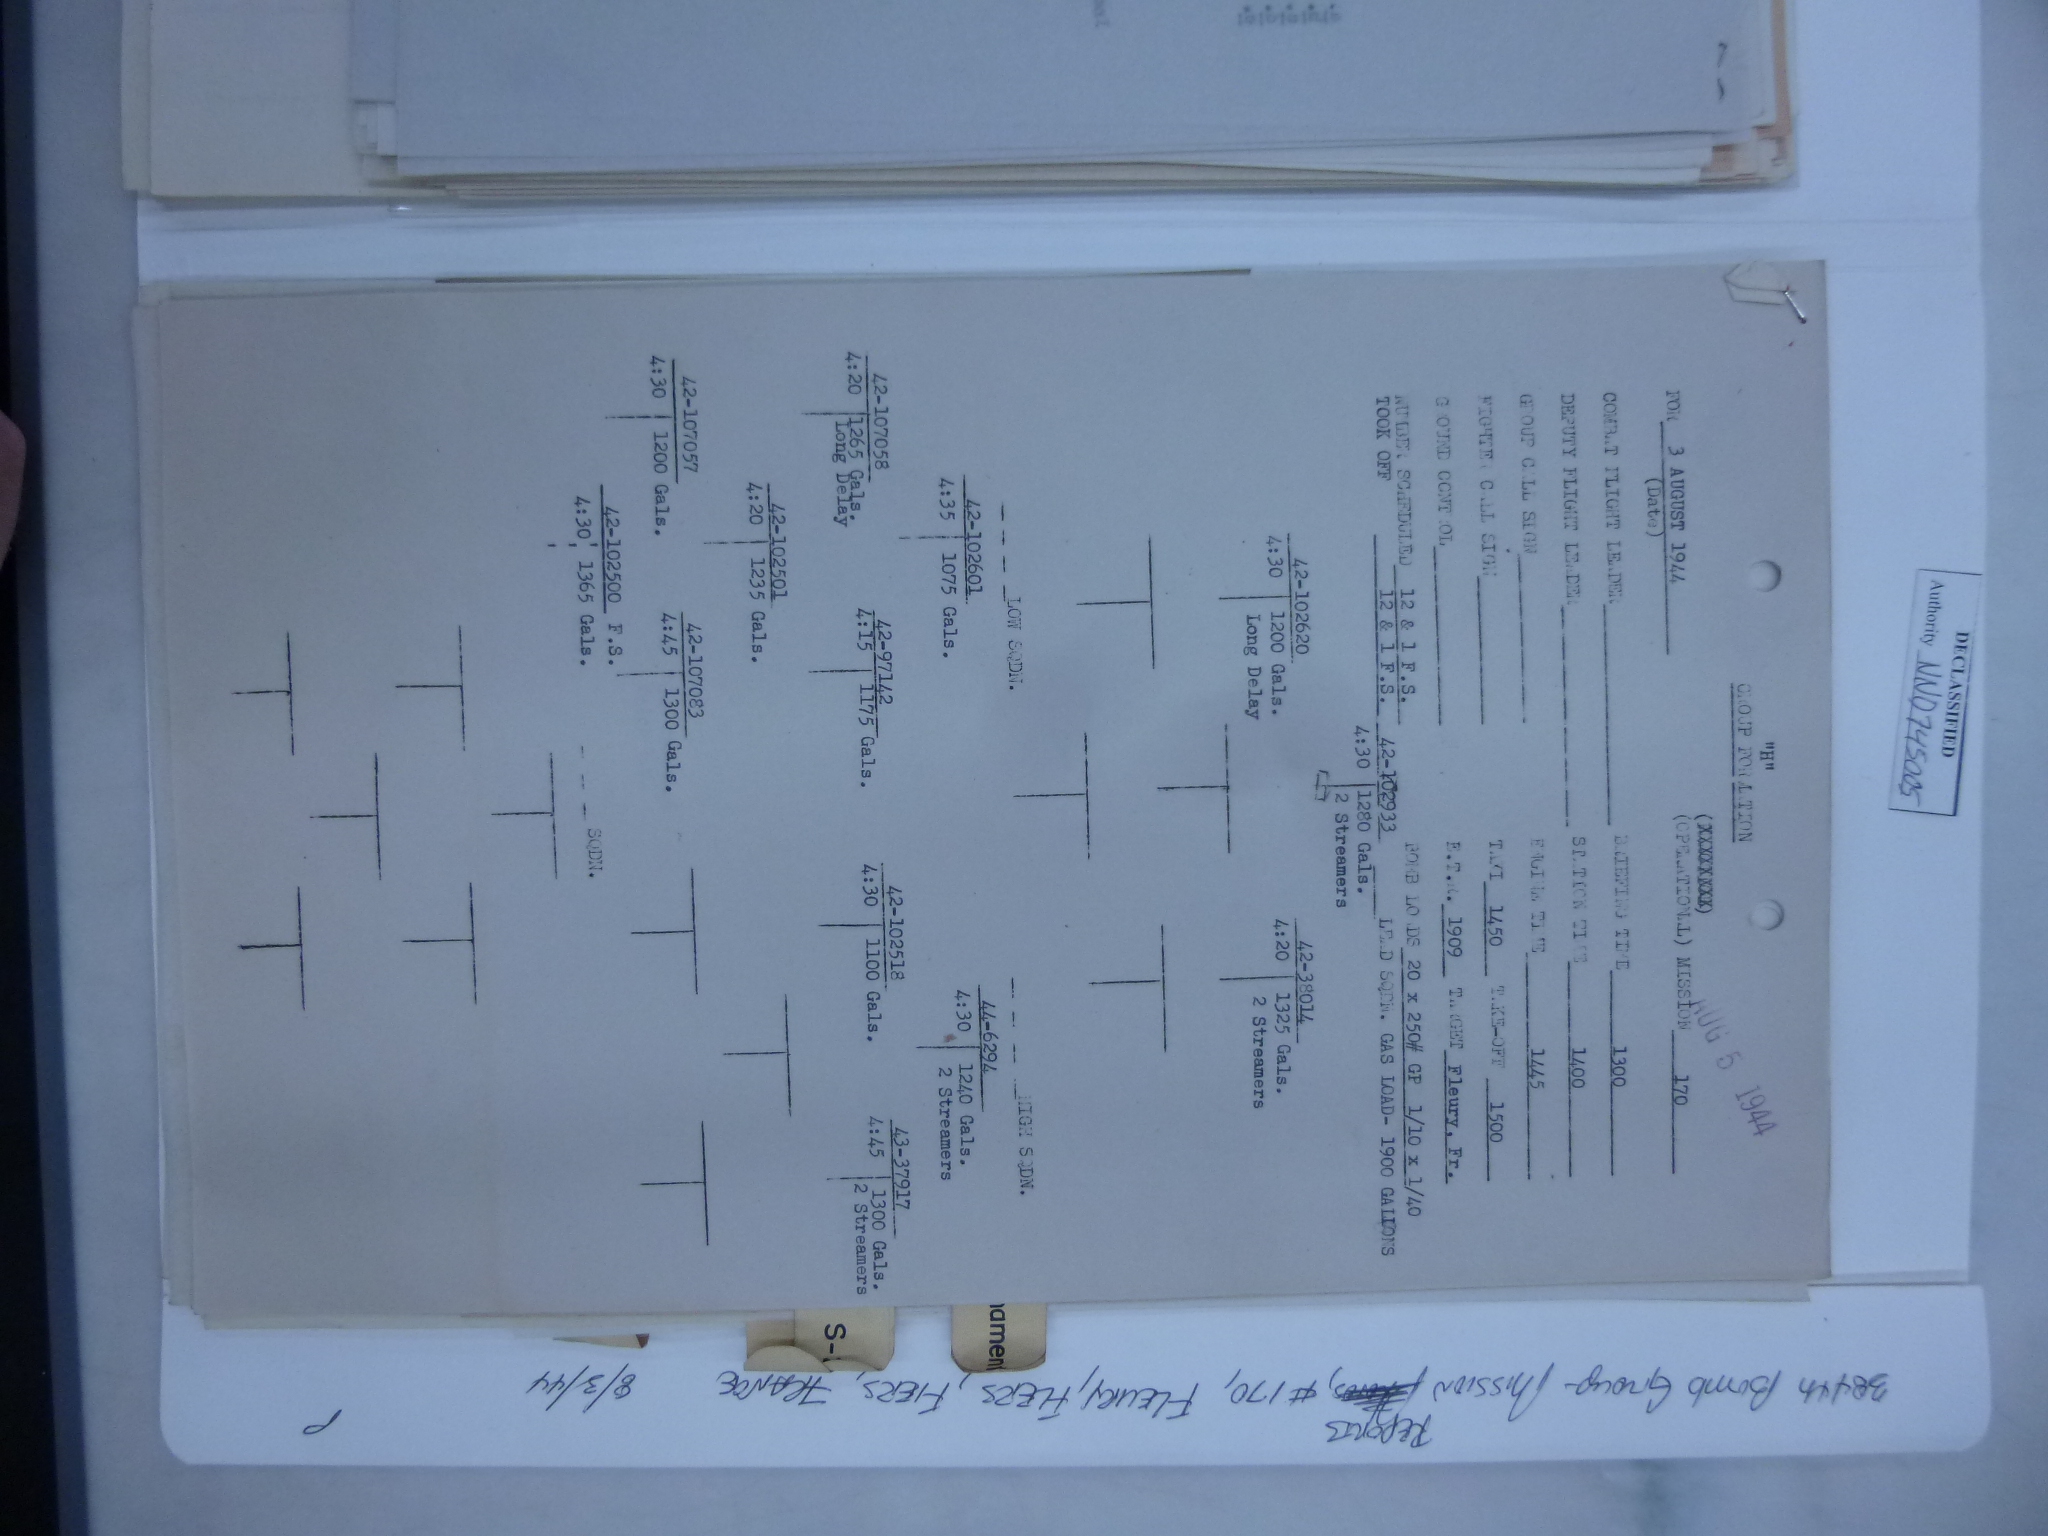 DECLASSIFIED
Authority NND745005
"H"
GROUP FORMATION
AUG 5 1944
(XXXXXXXX)
FOR 3 AUGUST 1944 (OPERATIONAL) MISSION 170
(Date)
COMBAT FLIGHT LEADER BRIEFING TIME 1300
DEPUTY FLIGHT LEADER STATION TIME 1400
GROUP CALL SIGN ENGINE TIME 1445
FIGHTER CALL SIGN TAXI 1450 TAKE-OFF 1500
GROUND CONTROL E.T.A. 1909 TARGET Fleury, Fr.
NUMBER SCHEDULED 12 & 1 F.S. BOMB LOADS 20 x 250# GP 1/10 x 1/40
TOOK OFF 12 & 1 F.S. 42-102933 LEAD SQDN. GAS LOAD- 1900 GALLONS
4:30 1280 Gals.
2 Streamers
42-102620 42-38014
4:30 1200 Gals. 4:20 1325 Gals.
Long Delay 2 Streamers
LOW SQDN. HIGH SQDN.
42-102601 44-6294
4:35 1075 Gals. 4:30 1240 Gals.
2 Streamers
42-107058 42-97142 42-102518 43-37917
4:20 1265 Gals. 4:15 1175 Gals. 4:30 1100 Gals. 4:45 1300 Gals.
Long Delay 2 Streamers
42-102501
4:20 1235 Gals.
42-107057 42-107083
4:30 1200 Gals. 4:45 1300 Gals.
42-102500 F.S.
4:30 1365 Gals.
SQDN.
namen
S-
384th Bomb Group - Mission Reports, #170, Fleury, Flers, Fiers, France
8/3/44